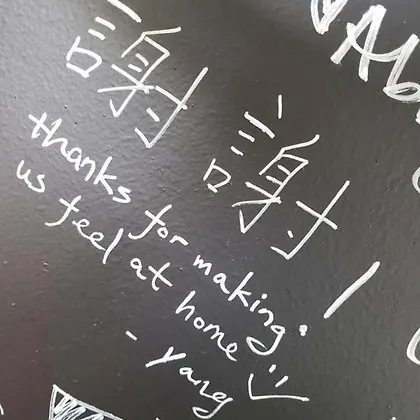 謝謝!
thanks for making
us feel at home
- Yang
Ab